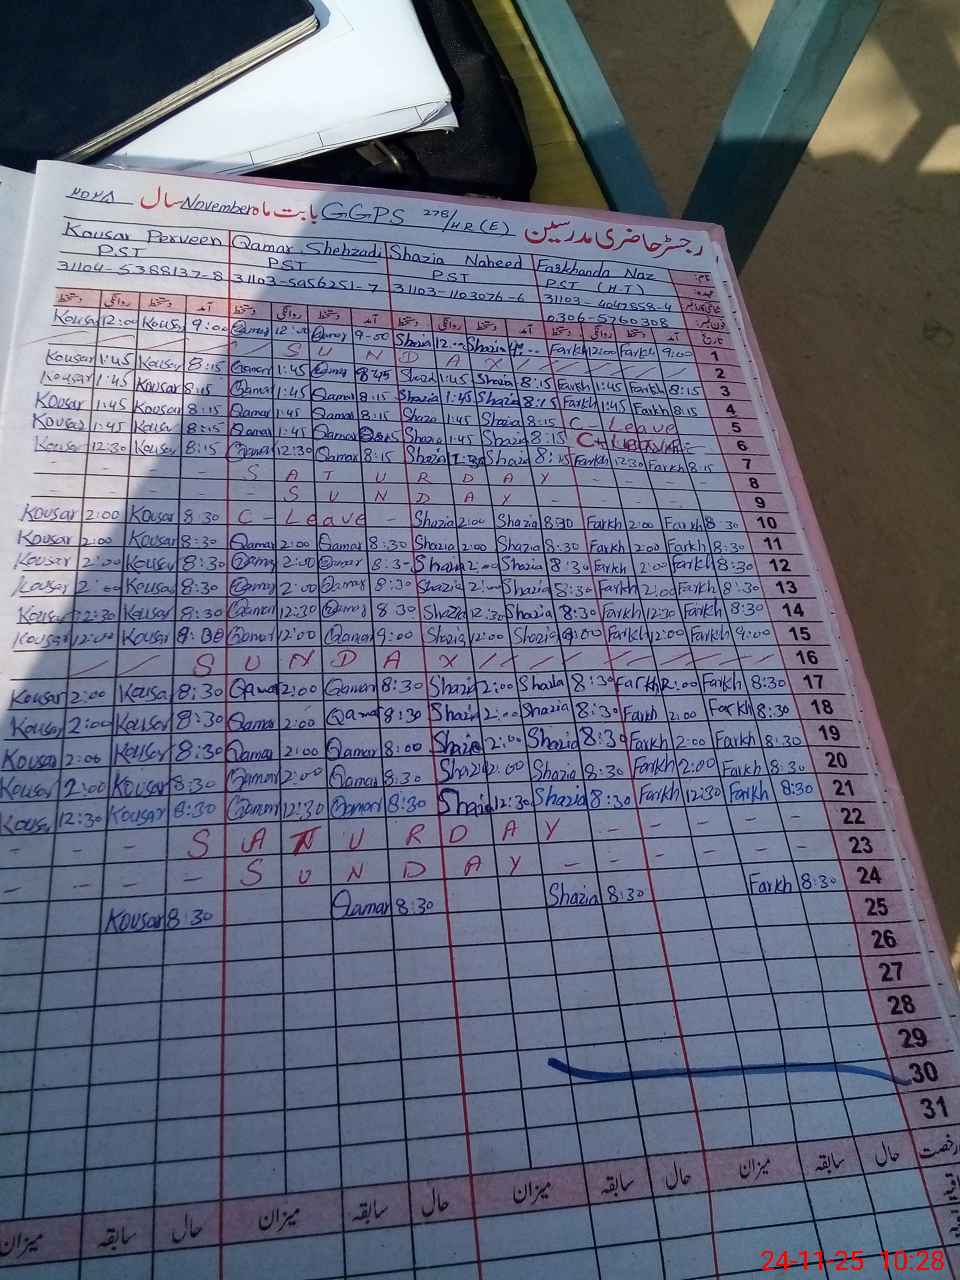 رجسٹر حاضری مدرسین GGPS 276/HR (E) بابت ماہ November سال ۲۰۲۵
Kousar Perveen Qamar Shehzadi Shazia Naheed Farkhanda Naz نام
PST PST PST PST (H.T) عہدہ
31104-5388137-8 31103-5056251-7 31103-1103076-6 31103-4047858-4
0306-5760308
دستخط روانگی دستخط آمد دستخط روانگی دستخط آمد دستخط روانگی دستخط آمد دستخط روانگی دستخط آمد تاریخ
Kousar 12:00 Kousar 9:00 Qamar 12:00 Qamar 9:00 Shazia 12:00 Shazia Farkh 12:00 Farkh 9:00 1
S U N D A Y 2
Kousar 1:45 Kousar 8:15 Qamar 1:45 Qamar 8:45 Shazia 1:45 Shazia 8:15 Farkh 1:45 Farkh 8:15 3
Kousar 1:45 Kousar 8:15 Qamar 1:45 Qamar 8:15 Shazia 1:45 Shazia 8:15 Farkh 1:45 Farkh 8:15 4
Kousar 1:45 Kousar 8:15 Qamar 1:45 Qamar 8:15 Shazia 1:45 Shazia 8:15 C - Leave 5
Kousar 1:45 Kousar 8:15 Qamar 1:45 Qamar 8:15 Shazia 1:45 Shazia 8:15 6
Kousar 12:30 Kousar 8:15 Qamar 12:30 Qamar 8:15 Shazia 12:30 Shazia 8:15 Farkh 12:30 Farkh 8:15 7
- - - - S A T U R D A Y - - - 8
- - - - S U N D A Y - - - - 9
Kousar 2:00 Kousar 8:30 C - Leave - Shazia 2:00 Shazia 8:30 Farkh 2:00 Farkh 8:30 10
Kousar 2:00 Kousar 8:30 Qamar 2:00 Qamar 8:30 Shazia 2:00 Shazia 8:30 Farkh 2:00 Farkh 8:30 11
Kousar 2:00 Kousar 8:30 Qamar 2:00 Qamar 8:30 Shazia 2:00 Shazia 8:30 Farkh 2:00 Farkh 8:30 12
Kousar 2:00 Kousar 8:30 Qamar 2:00 Qamar 8:30 Shazia 2:00 Shazia 8:30 Farkh 2:00 Farkh 8:30 13
Kousar 12:30 Kousar 8:30 Qamar 12:30 Qamar 8:30 Shazia 12:30 Shazia 8:30 Farkh 12:30 Farkh 8:30 14
Kousar 12:00 Kousar Qamar 12:00 Qamar 9:00 Shazia 12:00 Shazia 9:00 Farkh 12:00 Farkh 9:00 15
S U N D A Y 16
Kousar 2:00 Kousar 8:30 Qamar 2:00 Qamar 8:30 Shazia 2:00 Shazia 8:30 Farkh 2:00 Farkh 8:30 17
Kousar 2:00 Kousar 8:30 Qamar 2:00 Qamar 8:30 Shazia 2:00 Shazia 8:30 Farkh 2:00 Farkh 8:30 18
Kousar 2:00 Kousar 8:30 Qamar 2:00 Qamar 8:00 Shazia 2:00 Shazia 8:30 Farkh 2:00 Farkh 8:30 19
Kousar 2:00 Kousar 8:30 Qamar 2:00 Qamar 8:30 Shazia 2:00 Shazia 8:30 Farkh 2:00 Farkh 8:30 20
Kousar 12:30 Kousar 8:30 Qamar 12:30 Qamar 8:30 Shazia 12:30 Shazia 8:30 Farkh 12:30 Farkh 8:30 21
- - - S A T U R D A Y - - - - - 22
- - - - S U N D A Y - - - - - - 23
Kousar 8:30 Qamar 8:30 Shazia 8:30 Farkh 8:30 24
25
26
27
28
29
30
31
میزان سابقہ حال میزان سابقہ حال میزان سابقہ حال میزان سابقہ حال رخصت
24-11-25 10:28